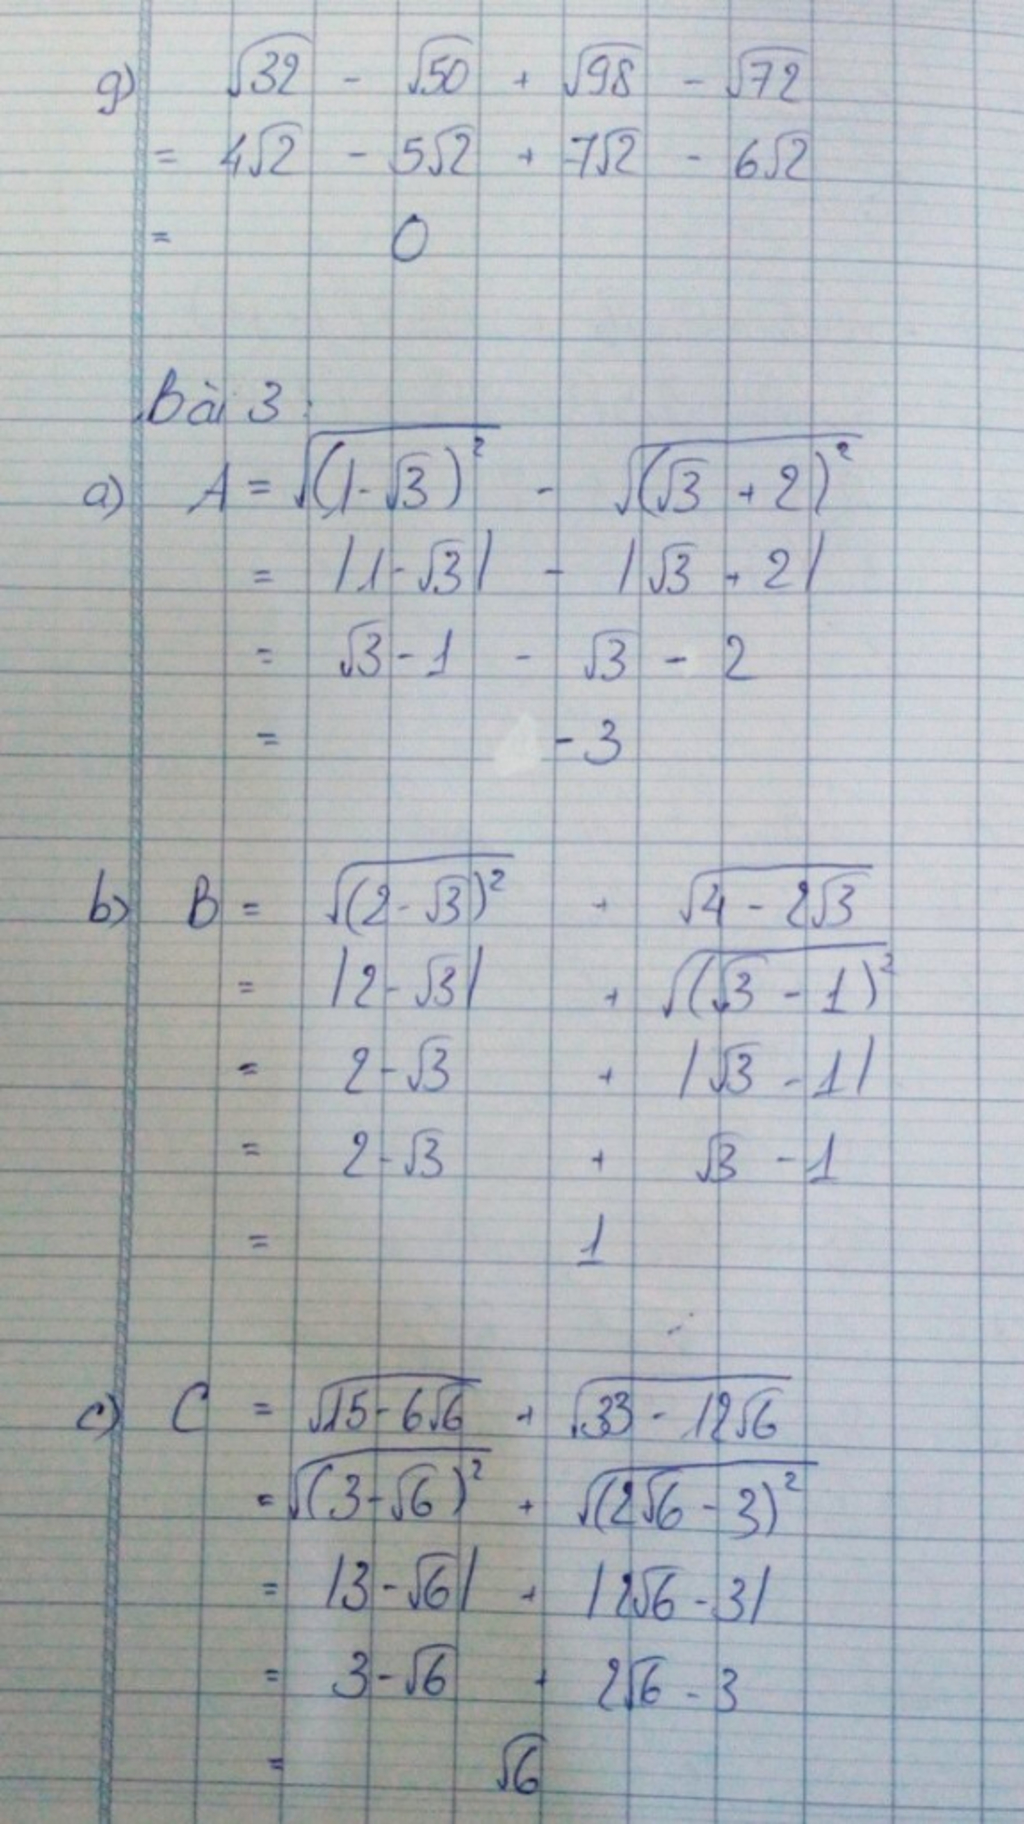 g) √32 - √50 + √98 - √72
= 4√2 - 5√2 + 7√2 - 6√2
= 0
Bài 3:
a) A = √(1-√3)² - √(√3 + 2)²
= |1-√3| - |√3 + 2|
= √3 - 1 - √3 - 2
= -3
b) B = √(2-√3)² + √4 - 2√3
= |2-√3| + √(√3 - 1)²
= 2-√3 + |√3 - 1|
= 2-√3 + √3 - 1
= 1
c) C = √15-6√6 + √33 - 12√6
= √(3-√6)² + √(2√6 - 3)²
= |3-√6| + |2√6 - 3|
= 3-√6 + 2√6 - 3
= √6